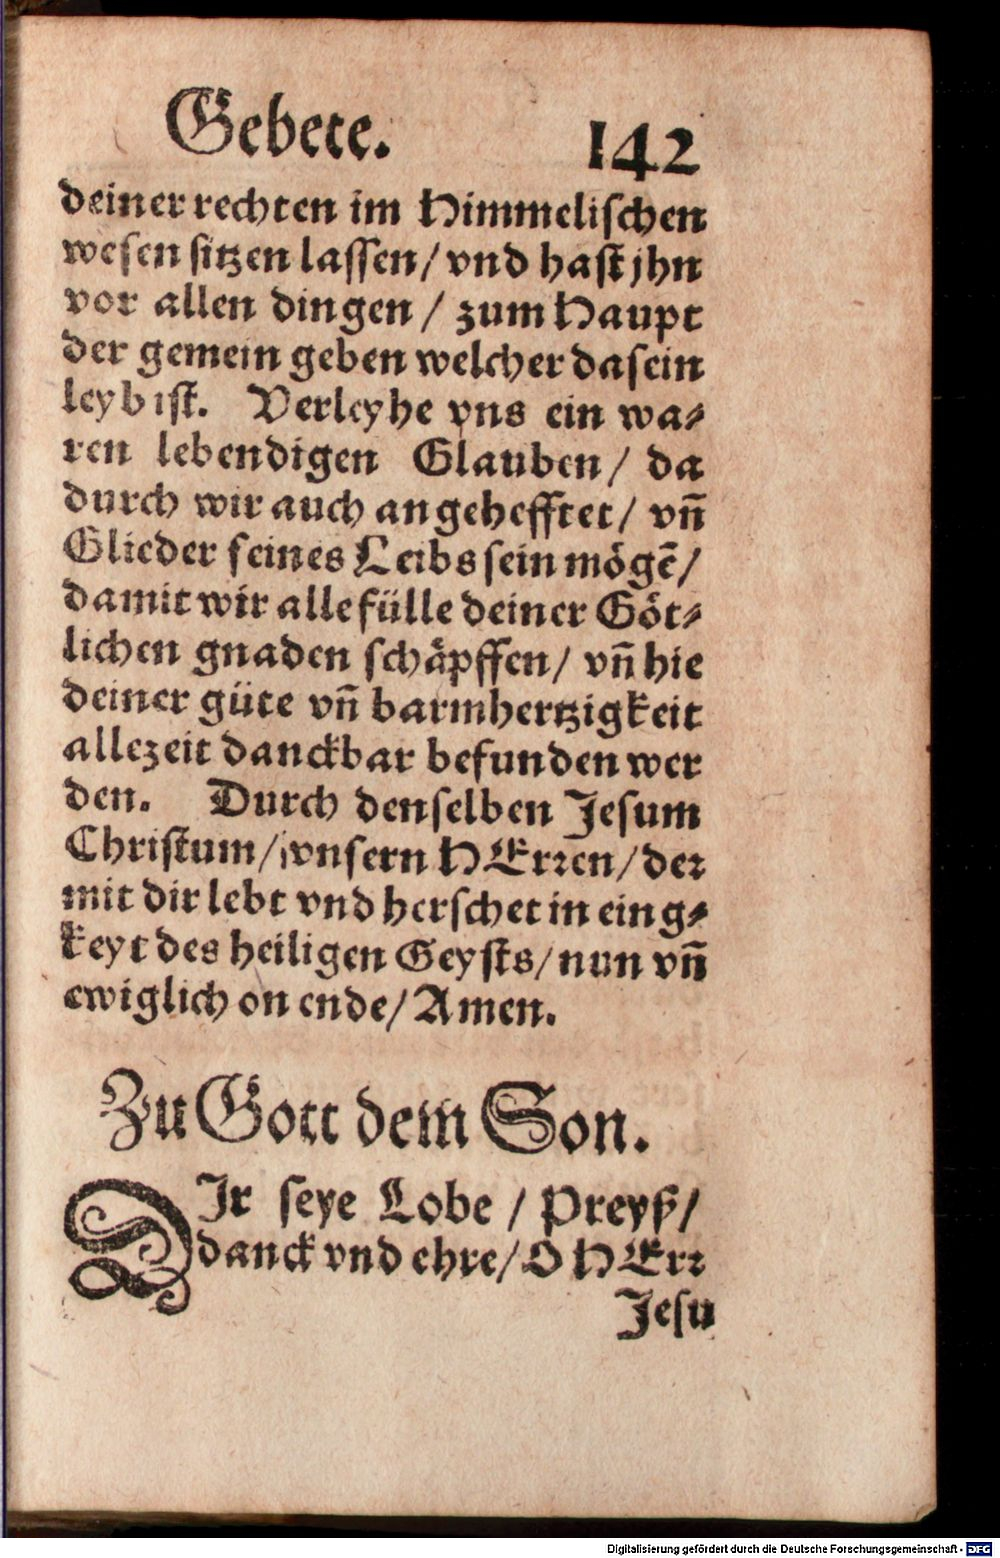 Gebete. 142
deiner rechten im Himmelischen
wesen sitzen lassen/ vnd hast jhn
vor allen dingen / zum Haupt
der gemein geben welcher da sein
leyb ist. Verleyhe vns ein wa-
ren lebendigen Glauben/ da
durch wir auch angehefftet/ vñ
Glieder seines Leibs sein mögē/
damit wir alle fülle deiner Göt-
lichen gnaden schäpffen/ vñ hie
deiner güte vñ barmhertzigkeit
allezeit danckbar befunden wer
den. Durch denselben Jesum
Christum/ vnsern HErren/ der
mit dir lebt vnd herschet in eing-
keyt des heiligen Geysts/ nun vñ
ewiglich on ende/ Amen.
Zu Gott dem Son.
DIr seye Lobe / Preyß/
danck vnd ehre/ O HErr
Jesu
Digitalisierung gefördert durch die Deutsche Forschungsgemeinschaft - DFG